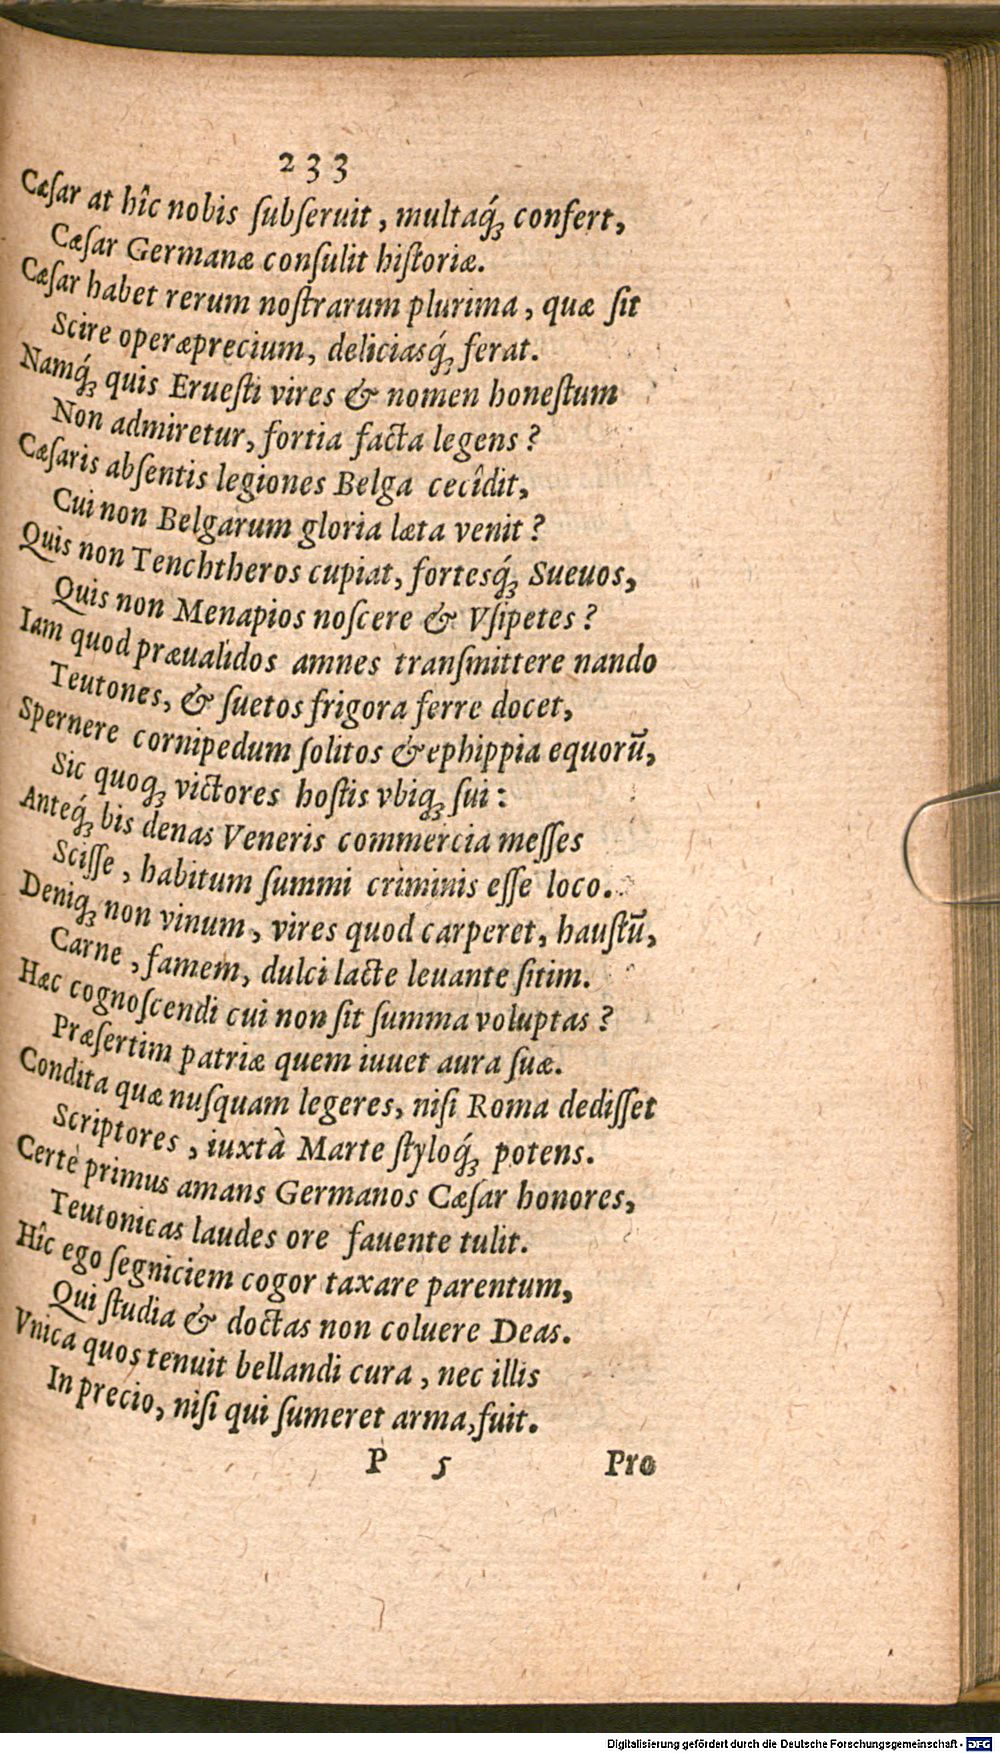 233
Cæſar at hîc nobis ſubſeruit, multaq́ꝫ confert,
Cæſar Germanæ conſulit hiſtoriæ.
Cæſar habet rerum noſtrarum plurima, quæ ſit
Scire operæprecium, deliciasq́ꝫ ferat.
Namq́ꝫ quis Erueſti vires & nomen honeſtum
Non admiretur, fortia facta legens?
Cæſaris abſentis legiones Belga cecîdit,
Cui non Belgarum gloria læta venit?
Quis non Tenchtheros cupiat, fortesq́ꝫ Sueuos,
Quis non Menapios noſcere & Vſipetes?
Iam quod præualidos amnes tranſmittere nando
Teutones, & ſuetos frigora ferre docet,
Spernere cornipedum ſolitos & ephippia equorū,
Sic quoqꝫ victores hoſtis vbiqꝫ ſui:
Anteq́ꝫ bis denas Veneris commercia meſſes
Sciſſe, habitum ſummi criminis eſſe loco.
Deniqꝫ non vinum, vires quod carperet, hauſtū,
Carne, famem, dulci lacte leuante ſitim.
Hæc cognoſcendi cui non ſit ſumma voluptas?
Præſertim patriæ quem iuuet aura ſuæ.
Condita quæ nuſquam legeres, niſi Roma dediſſet
Scriptores, iuxtà Marte ſtyloq́ꝫ potens.
Certè primus amans Germanos Cæſar honores,
Teutonicas laudes ore fauente tulit.
Hîc ego ſegniciem cogor taxare parentum,
Qui ſtudia & doctas non coluere Deas.
Vnica quos tenuit bellandi cura, nec illis
In precio, niſi qui ſumeret arma, fuit.
P 5 Pro
Digitalisierung gefördert durch die Deutsche Forschungsgemeinschaft - DFG